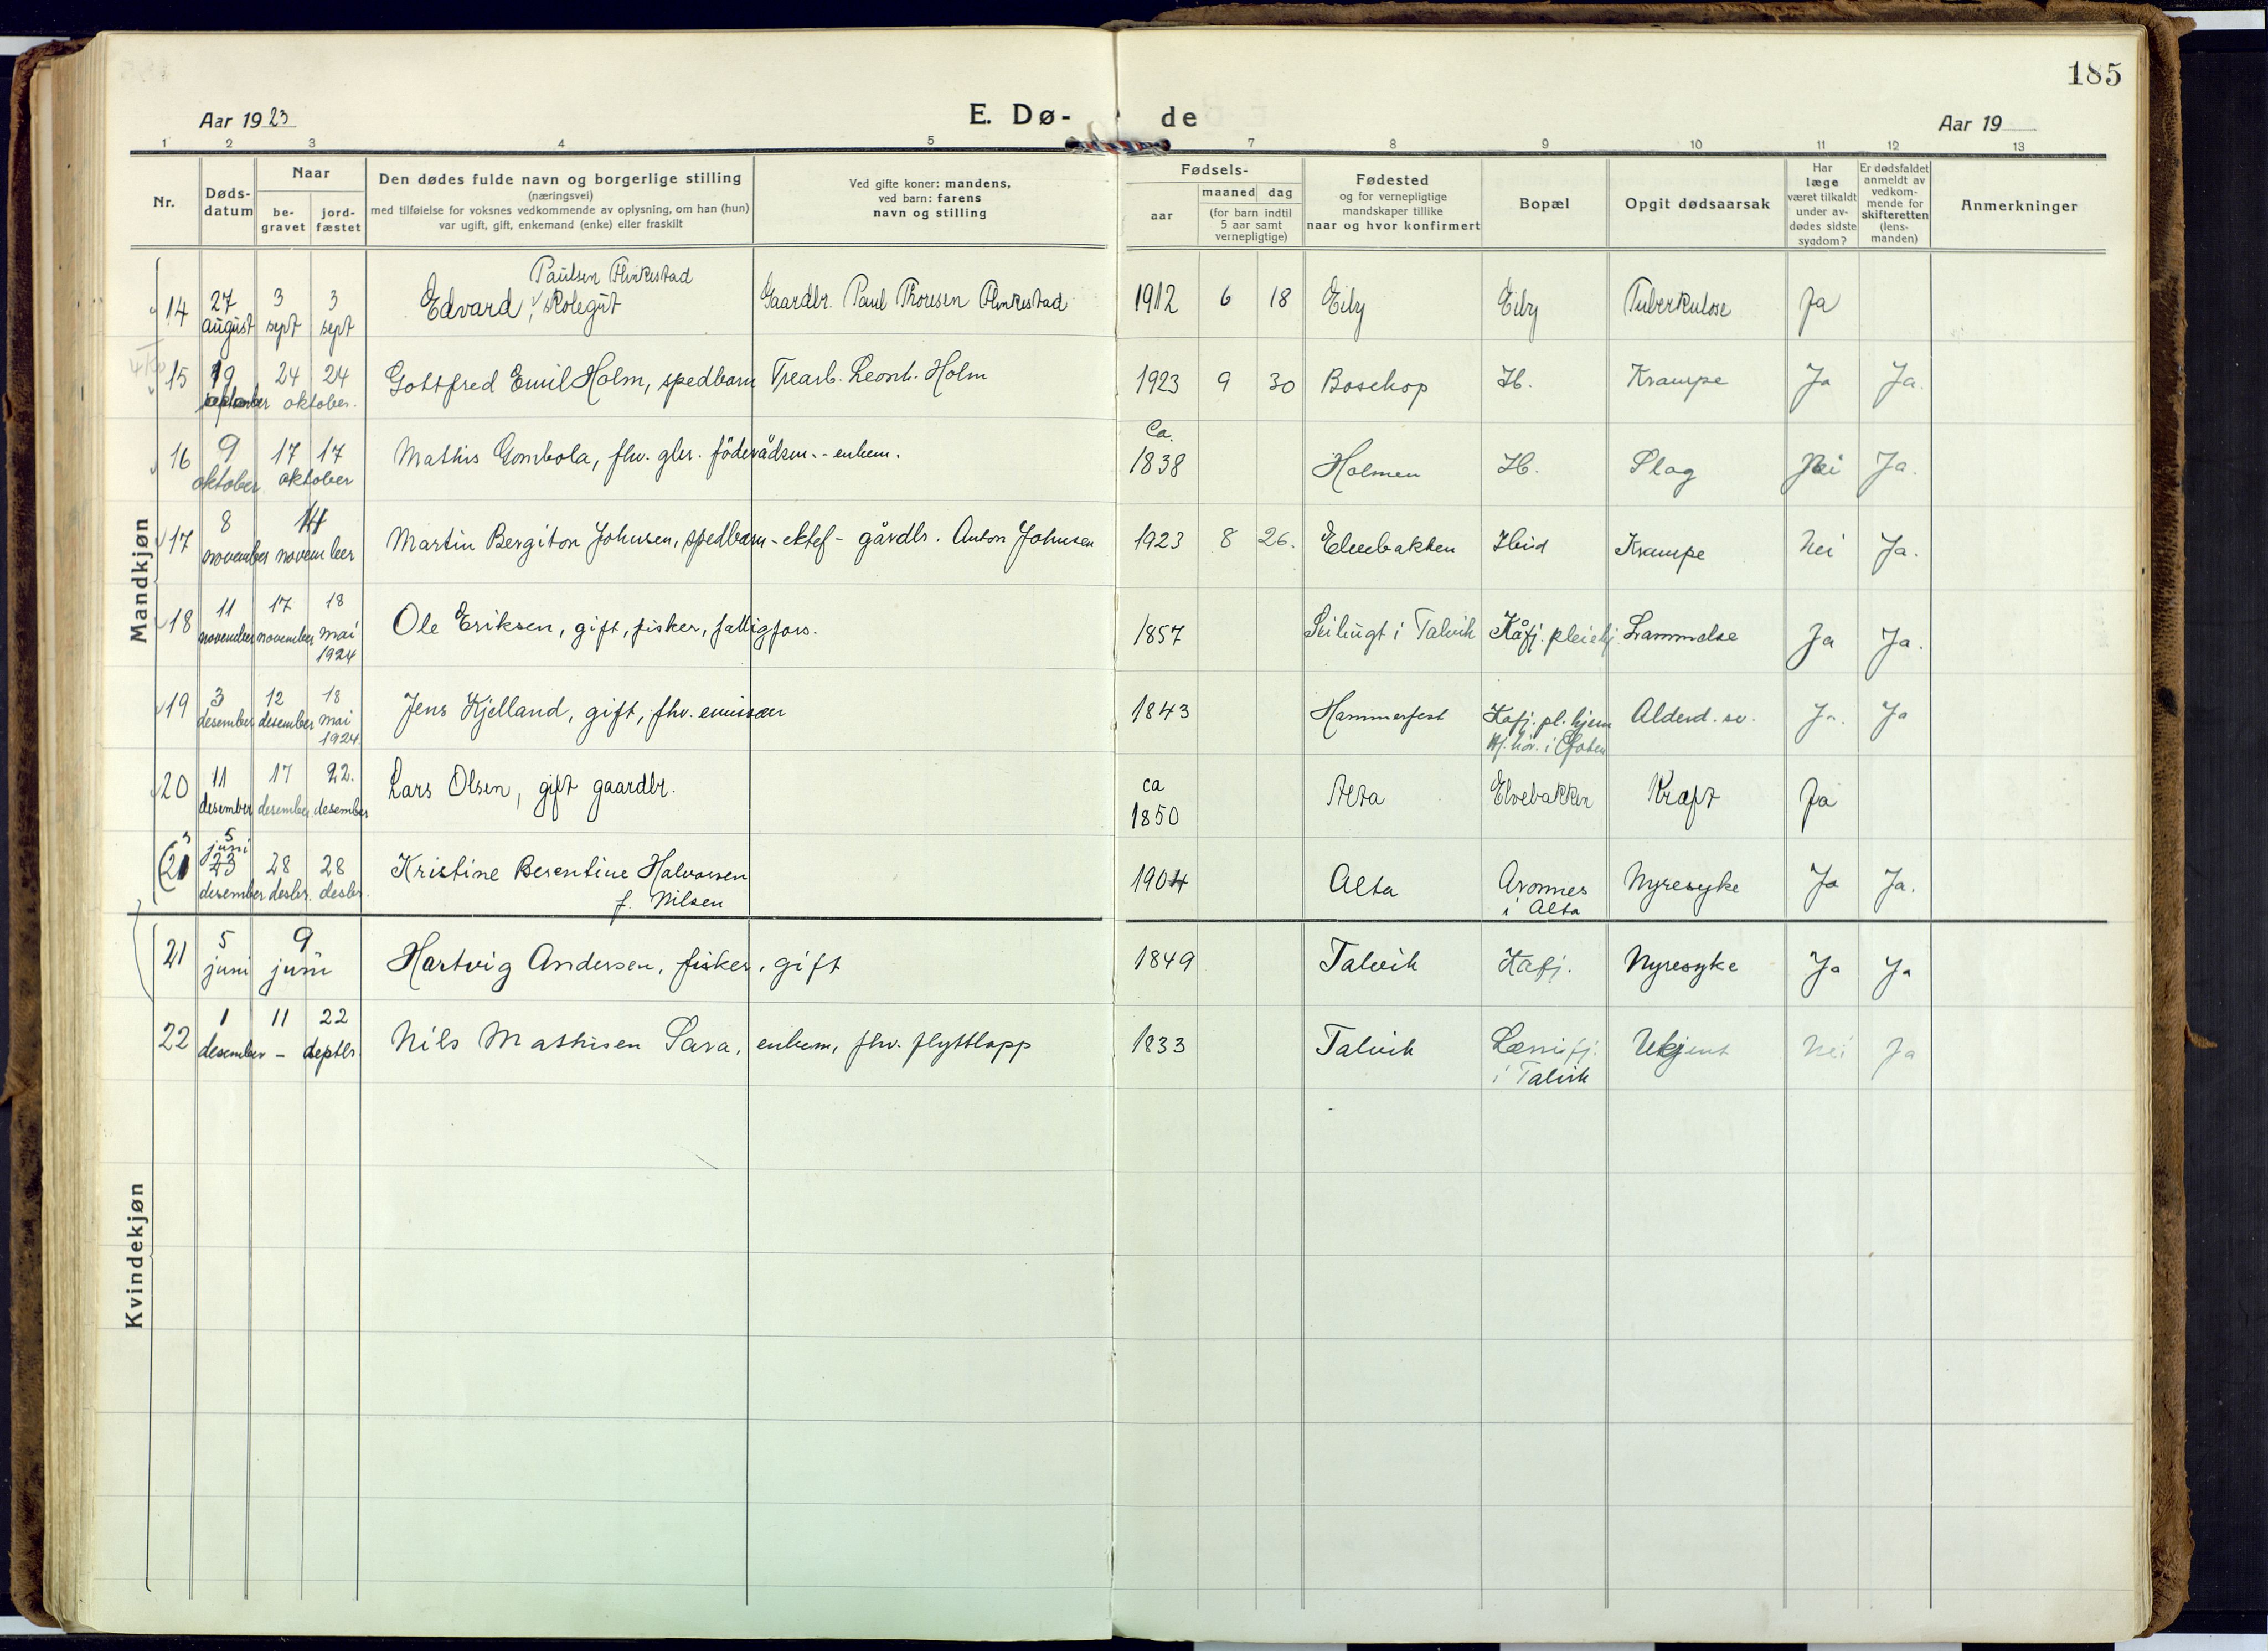 185
Aar 1923
E. Dø-
de
Aar 19
1 2 3 4 5 7 8 9 10 11 12 13
Nr.
Døds-
datum
Naar
be-
gravet
jord-
fæstet
Den dødes fulde navn og borgerlige stilling
(næringsvei)
med tilføielse for voksnes vedkommende av oplysning, om han (hun)
var ugift, gift, enkemand (enke) eller fraskilt
Ved gifte koner: mandens,
ved barn: farens
navn og stilling
Fødsels-
aar
maaned dag
(for barn indtil
5 aar samt
vernepligtige)
Fødested
og for vernepligtige
mandskaper tillike
naar og hvor konfirmert
Bopæl
Opgit dødsaarsak
Har
læge
været tilkaldt
under av-
dødes sidste
sygdom?
Er dødsfaldet
anmeldt av
vedkom-
mende for
skifteretten
(lens-
manden)
Anmerkninger
Mandkjøn
14 27 august 3 sept 3 sept Edvard Paulsen Flinkestad, skolegut Gaardbr. Paul Thoresen Flinkestad 1912 6 18 Eiby Eiby Tuberkulose Ja
15 19 24 24 oktober. Gottfred Emil Holm, spedbarn Trearb. Leonh. Holm 1923 9 30 Bosekop H. Krampe Ja Ja.
16 9 oktober 17 17 oktober Mathis Gombola, fhv. gbr. föderådsm. - enkem. Ca. 1838 Holmen H. Slag Nei Ja.
17 8 november 14 november Martin Bergiton Johnsen, spedbarn - ektef - gårdbr. Anton Johnsen 1923 8 26. Elvebakken Ibid Krampe Nei Ja.
18 11 november 17 november 18 mai 1924 Ole Eriksen, gift, fisker, fattigfors. 1857 Talvik Kåfj. pleiehj. Lammelse Ja Ja.
19 3 desember 12 desember 18 mai 1924 Jens Kjelland, gift, fhv. emissær 1843 Hammerfest Kåfj. pl. hjem Alderd. sv. Ja. Ja
20 11 desember 17 desember 22. desember Lars Olsen, gift gaardbr. ca 1850 Alta Elvebakken Kræft Ja
(21 5 juni 23 desember 28 desbr. 28 desbr. Kristine Berentine Halvorsen f. Nilsen 1904 Alta Aronnes i Alta Nyresyke Ja Ja.
21 5 juni 9 juni Hartvig Andersen, fisker, gift 1849 Talvik Kåfj. Nyresyke Ja Ja
22 1 desember 11 - 22 septbr. Nils Mathisen Sara, enkem, fhv. flyttlapp 1833 Talvik i Talvik Ukjent Nei Ja
Kvindekjøn